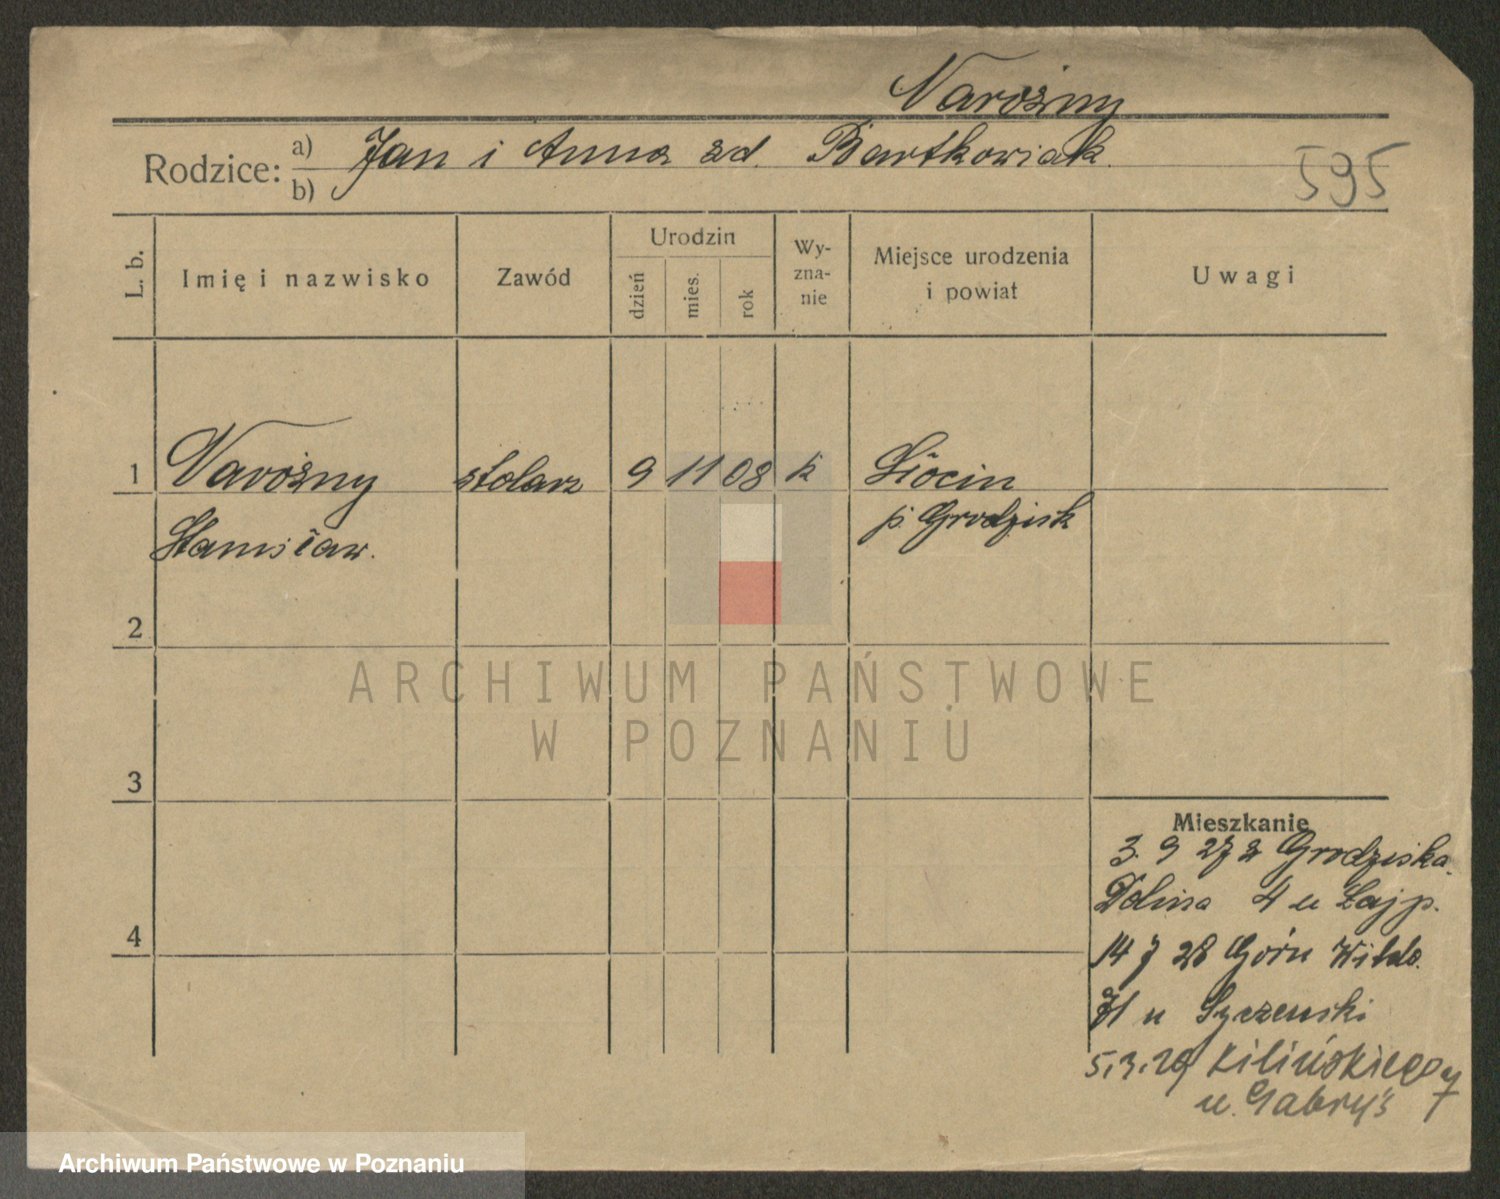 Narożny
Rodzice: a) Jan i Anna zd. Bartkowiak.
b)
595
L. b.
Imię i nazwisko
Zawód
Urodzin
dzień
mies.
rok
Wy-
zna-
nie
Miejsce urodzenia
i powiat
Uwagi
1 Narożny stolarz 9 11 08 k
p. Grodzisk
Stanisław.
2
3
4
ARCHIWUM PAŃSTWOWE
W POZNANIU
Mieszkanie
3. 9 27 z Grodziska.
Dolina 4 u Łajp.
14 7 28 Górn Wilda.
71 u
5.3.29 Kilińskiego 7
u. Gabryś
Archiwum Państwowe w Poznaniu